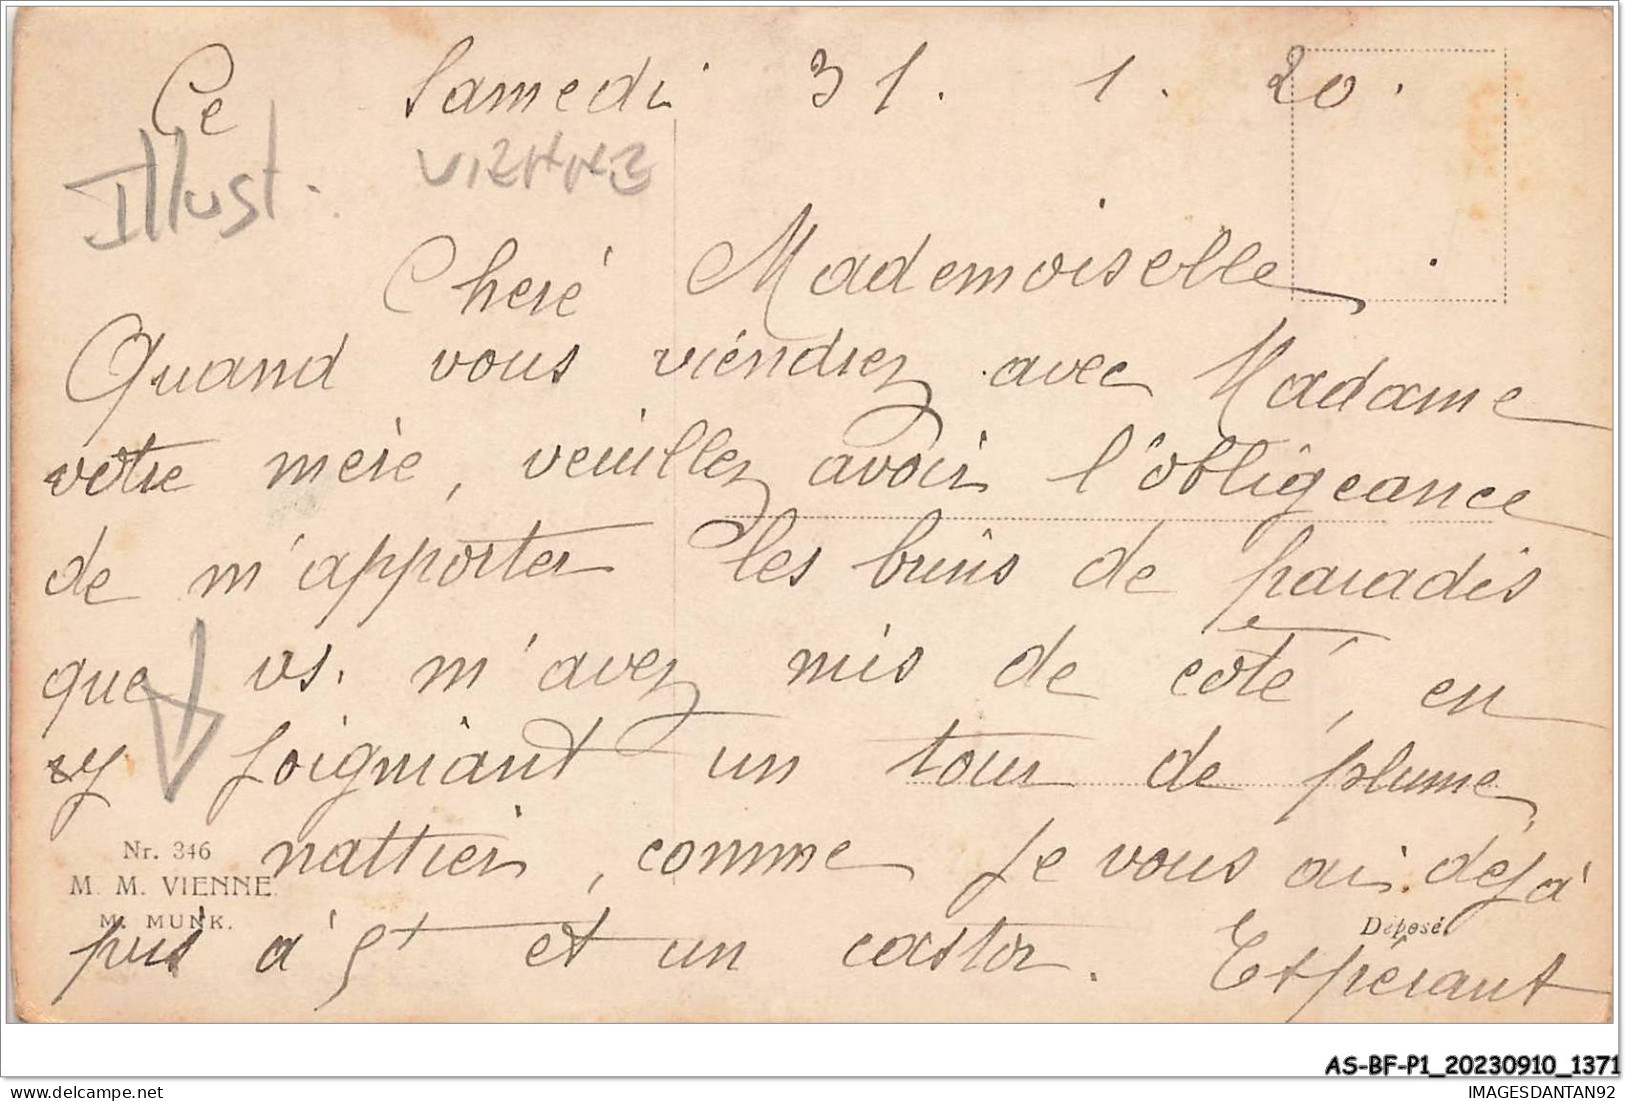 Ce Samedi 31. 1. 20.
Illust. VIENNE
Cheré Mademoiselle
Quand vous viendrez avec Madame
votre mère, veuillez avoir l'obligeance
de m'apporter les brins de paradis
que vs. m'avez mis de coté, en
y joigniant un tour de plume
Nr. 346
nattier, comme je vous ai déjà
M. M. VIENNE
M. MUNK.
Déposé
pris à St et un castor. Espérant
AS-BF-P1_20230910_1371
delcampe.net
IMAGESDANTAN92